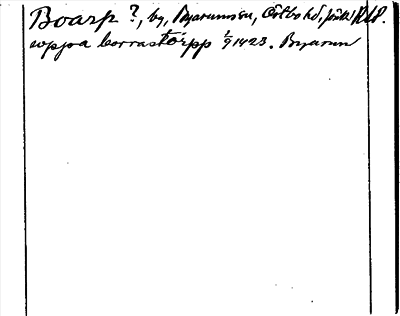 Boarp ?, by, Byarums sn, Östbo hd, Jönk. l.
uppa borrastorpp 1/9 1423. Byarum